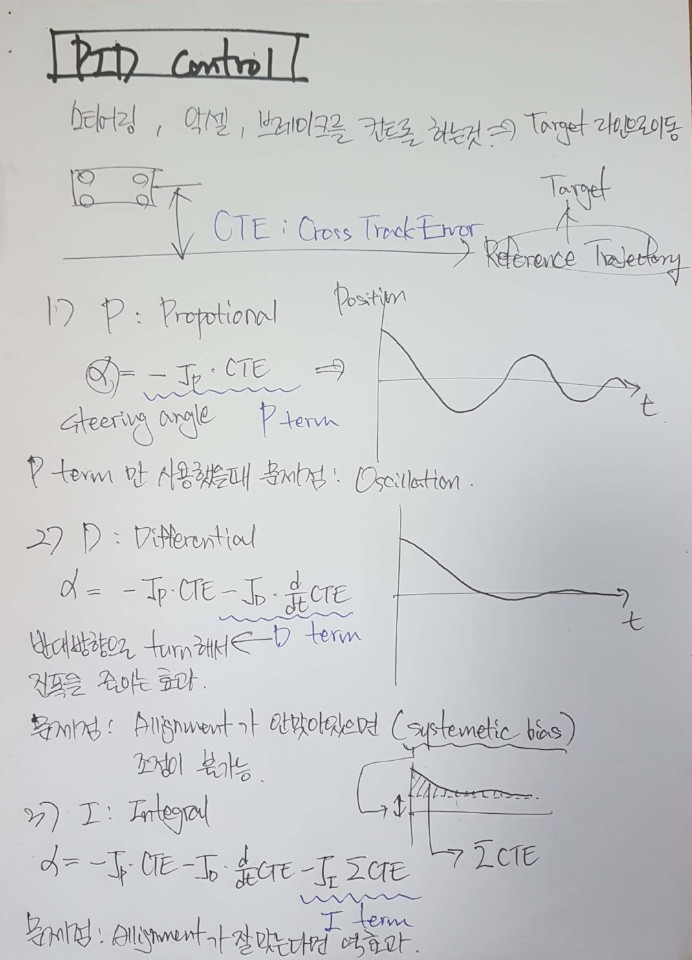 PID Control
스티어링, 악셀, 브레이크를 컨트롤 하는것 ⇒ Target 라인으로 이동
Target
CTE : Cross Track Error
Reference Trajectory
1) P : Propotional
Position
α = - Jp · CTE ⇒
t
Steering angle P term
P term 만 사용했을때 문제점 : Oscillation.
2) D : Differential
α = - Jp · CTE - JD · d/dt CTE
t
반대방향으로 turn해서 ← D term
진폭을 줄이는 효과.
문제점 : Allignment가 안맞아있으면 (systemetic bias)
조정이 불가능.
3) I : Integral
ΣCTE
α = - Jp · CTE - JD · d/dt CTE - JI ΣCTE
I term
문제점 : Allignment가 잘맞는다면 역효과.